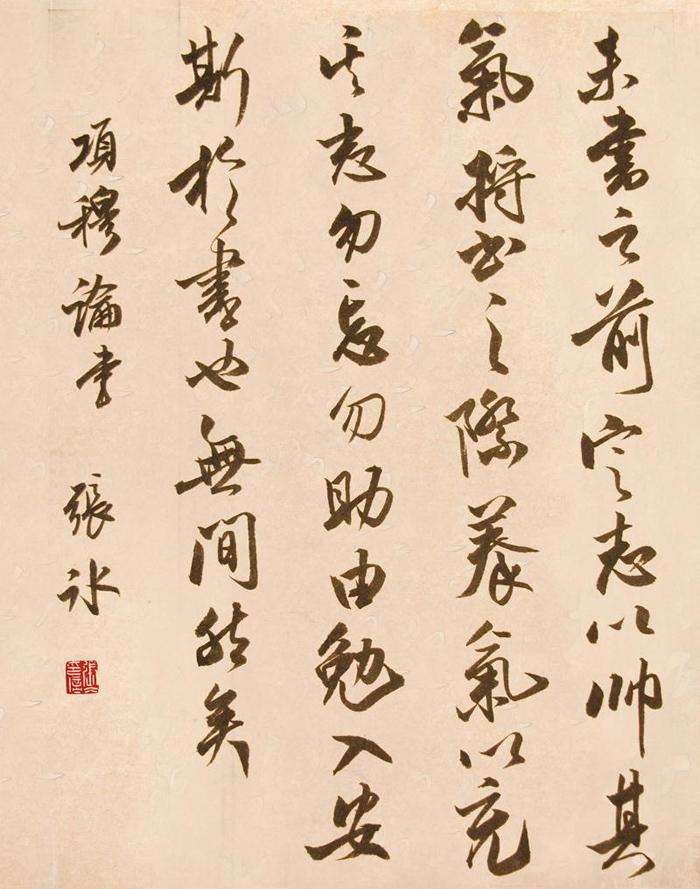 未書之前定志以帥其
氣將書之際養氣以充
其志勿忘勿助由勉入安
斯於書也無間然矣
項穆論書 張冰